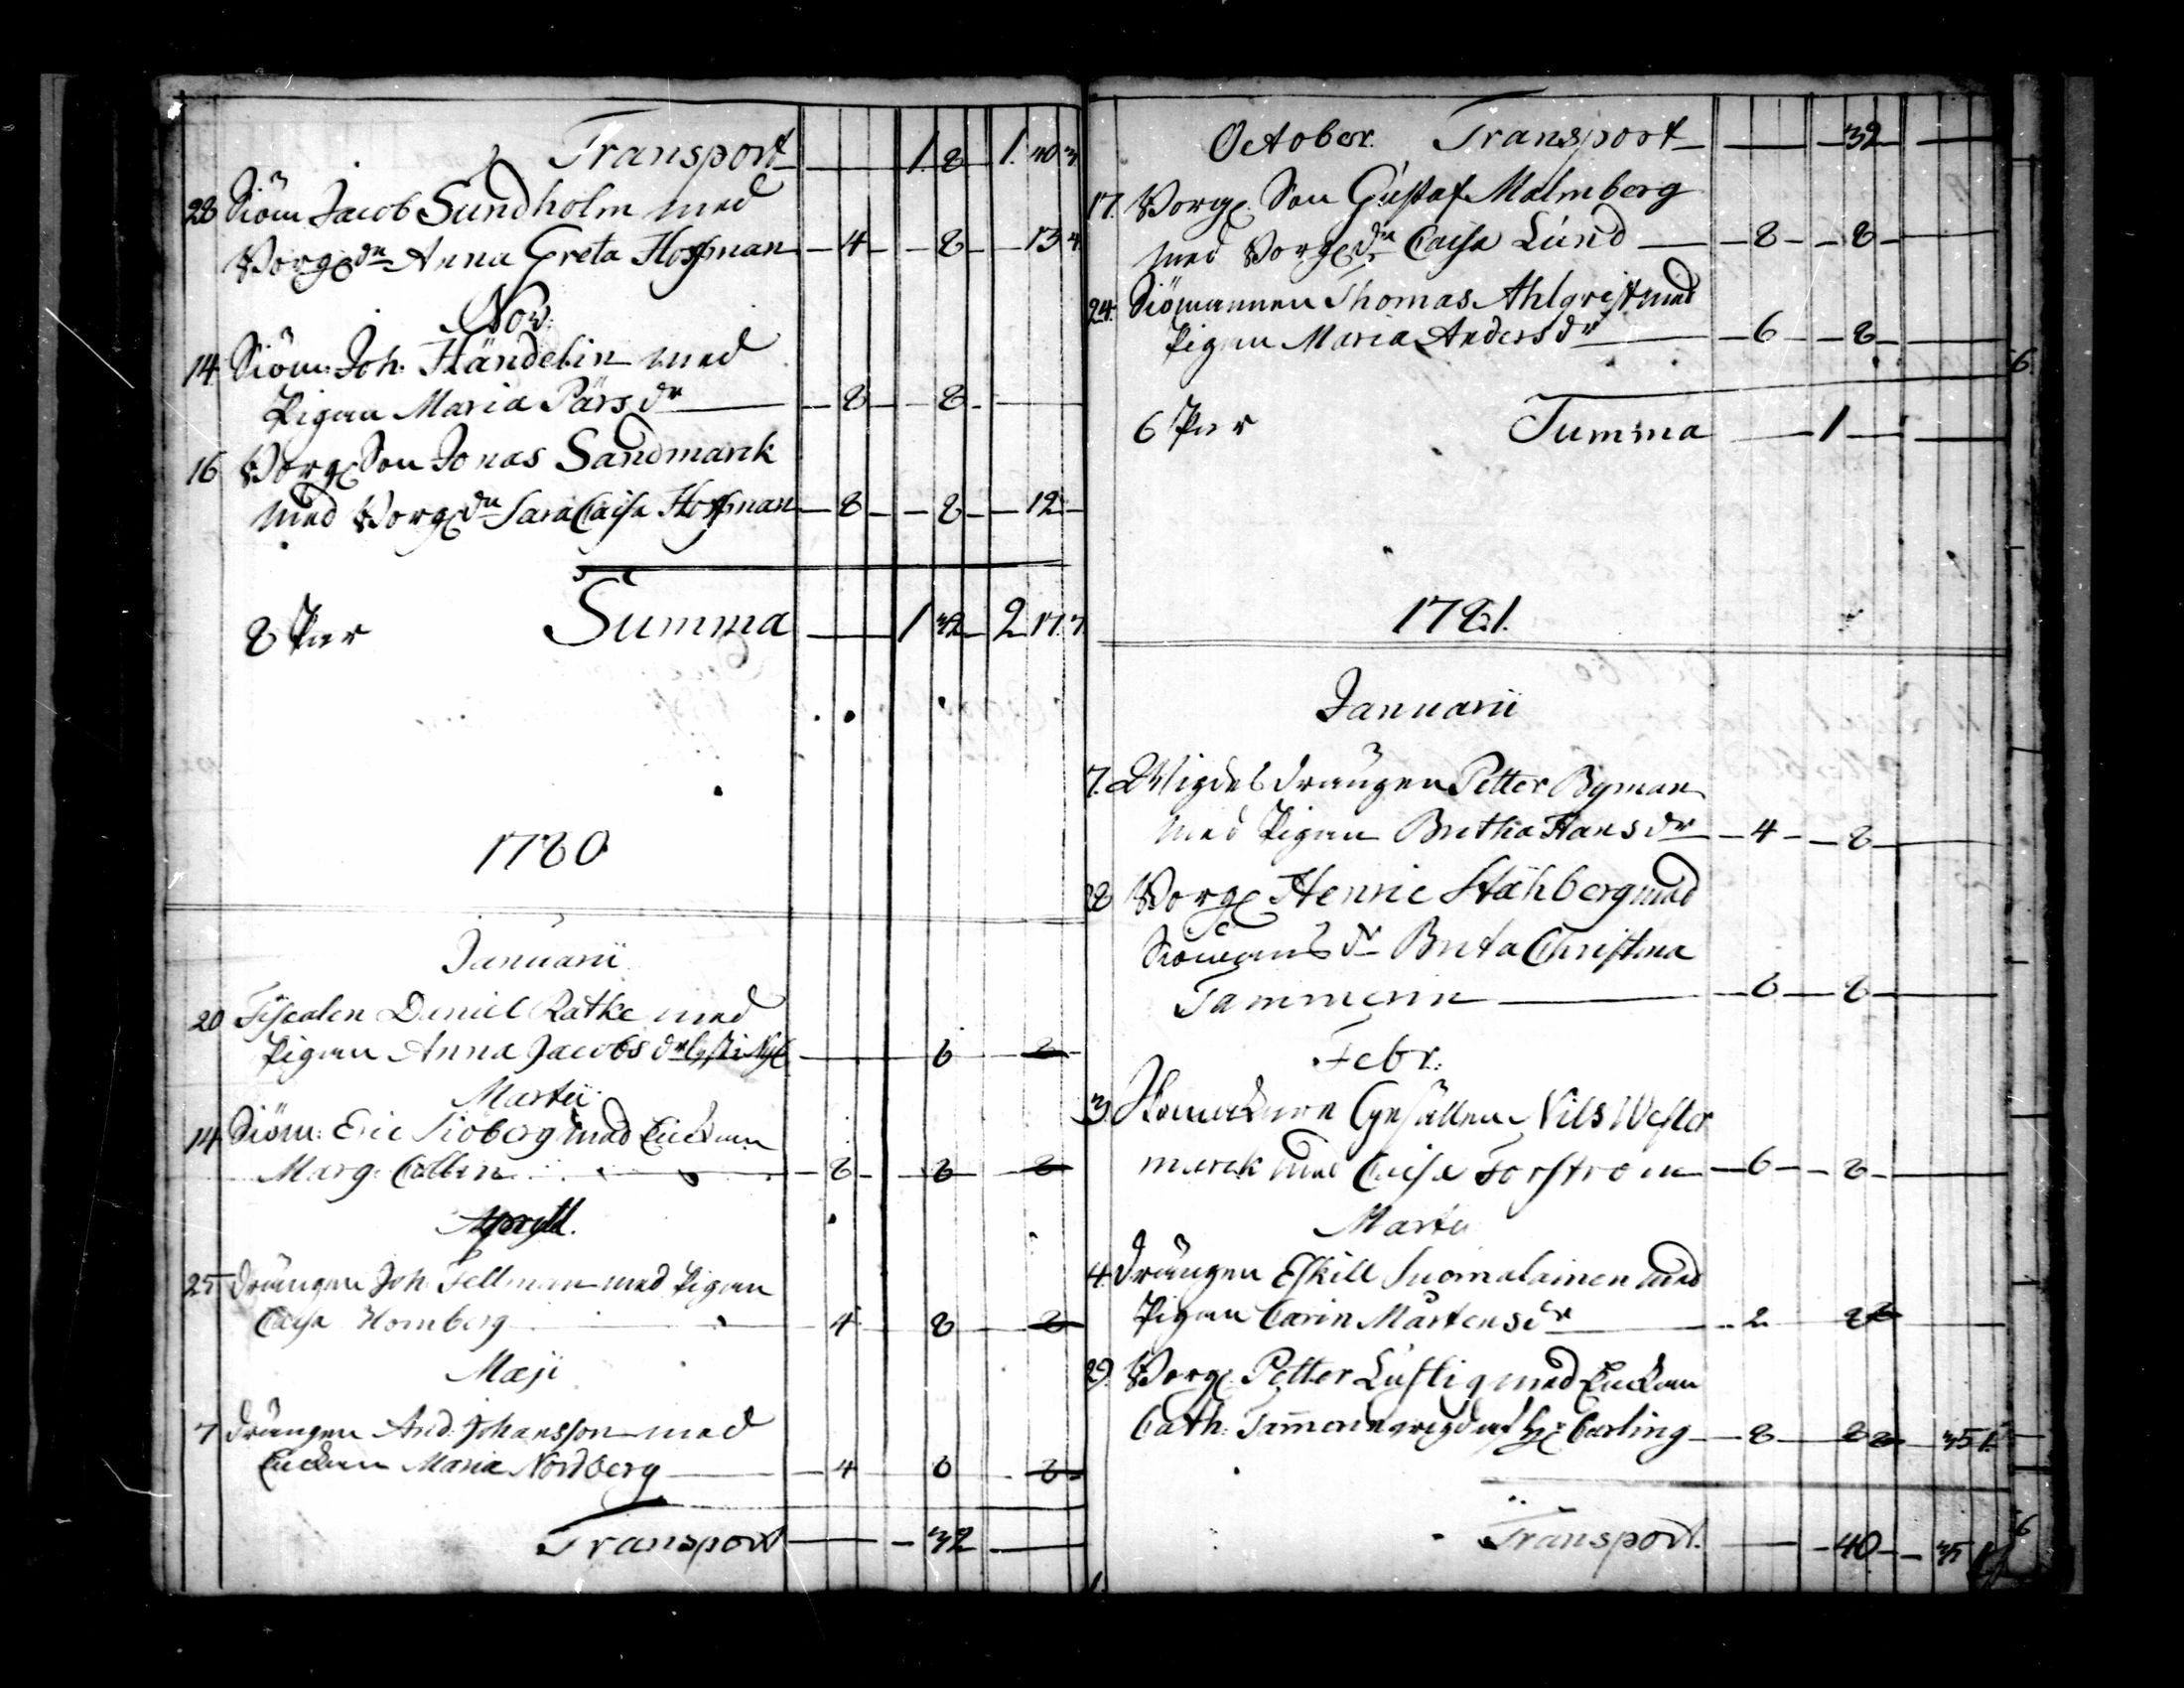 Transport — 1. 8 1. 40 3.
28 Siöm Jacob Sundholm med
Borg. dr Anna Greta Hoffman — 4 — 8 — 13 4
Nov:
14 Siöm: Joh. Händelin med
Pigan Maria Pärs dr — 8 — 8 —
16 Borg. Son Jonas Sandmark
med Borg. dr Sara Caisa Hoffman — 8 — 8 — 12 —
8 Par Summa — 1 32 2 17. 7.
1780
Januarii
20 Fiscalen Daniel Ratke med
Pigan Anna Jacobs dr — 8 — 8 —
Martii
14 Siöm: Eric Siöberg med Enckan
Marg. Collin — 8 — 8 — 8
Aprill.
25 Drängen Joh. Fellman med Pigan
Caisa Homberg — 4 — 8 — 8
Maji
7 Drängen And. Johansson med
Enckan Maria Nordberg — 4 — 8 — 8 —
Transport — 32 —
October. Transport — 32 —
17. Borg. Son Gustaf Malmberg
med Borg. dr Caisa Lund — 8 — 8 —
24. Siömannen Thomas Ahlqvist med
Pigan Maria Anders dr — 6 — 8 —
6 Par Summa — 1 —
1781.
Januarii
7. drängen Petter Byman
med Pigan Britha Hans dr — 4 — 8 —
28 Borg. Henric Ståhlberg med
Siömans dr Brita Christina
Tammelin — 8 — 8 —
Febr:
3. Gesällen Nils Wester
marck med Caisa Forström — 6 — 8 —
Martii
4. Drängen Eskill Suomalainen med
Pigan Carin Mårtens dr — 2 8
29. Borg. Petter Lustig med Enckan
Cath. Carling — 8 — 8 — 35 1.
Transport. — 40 — 35